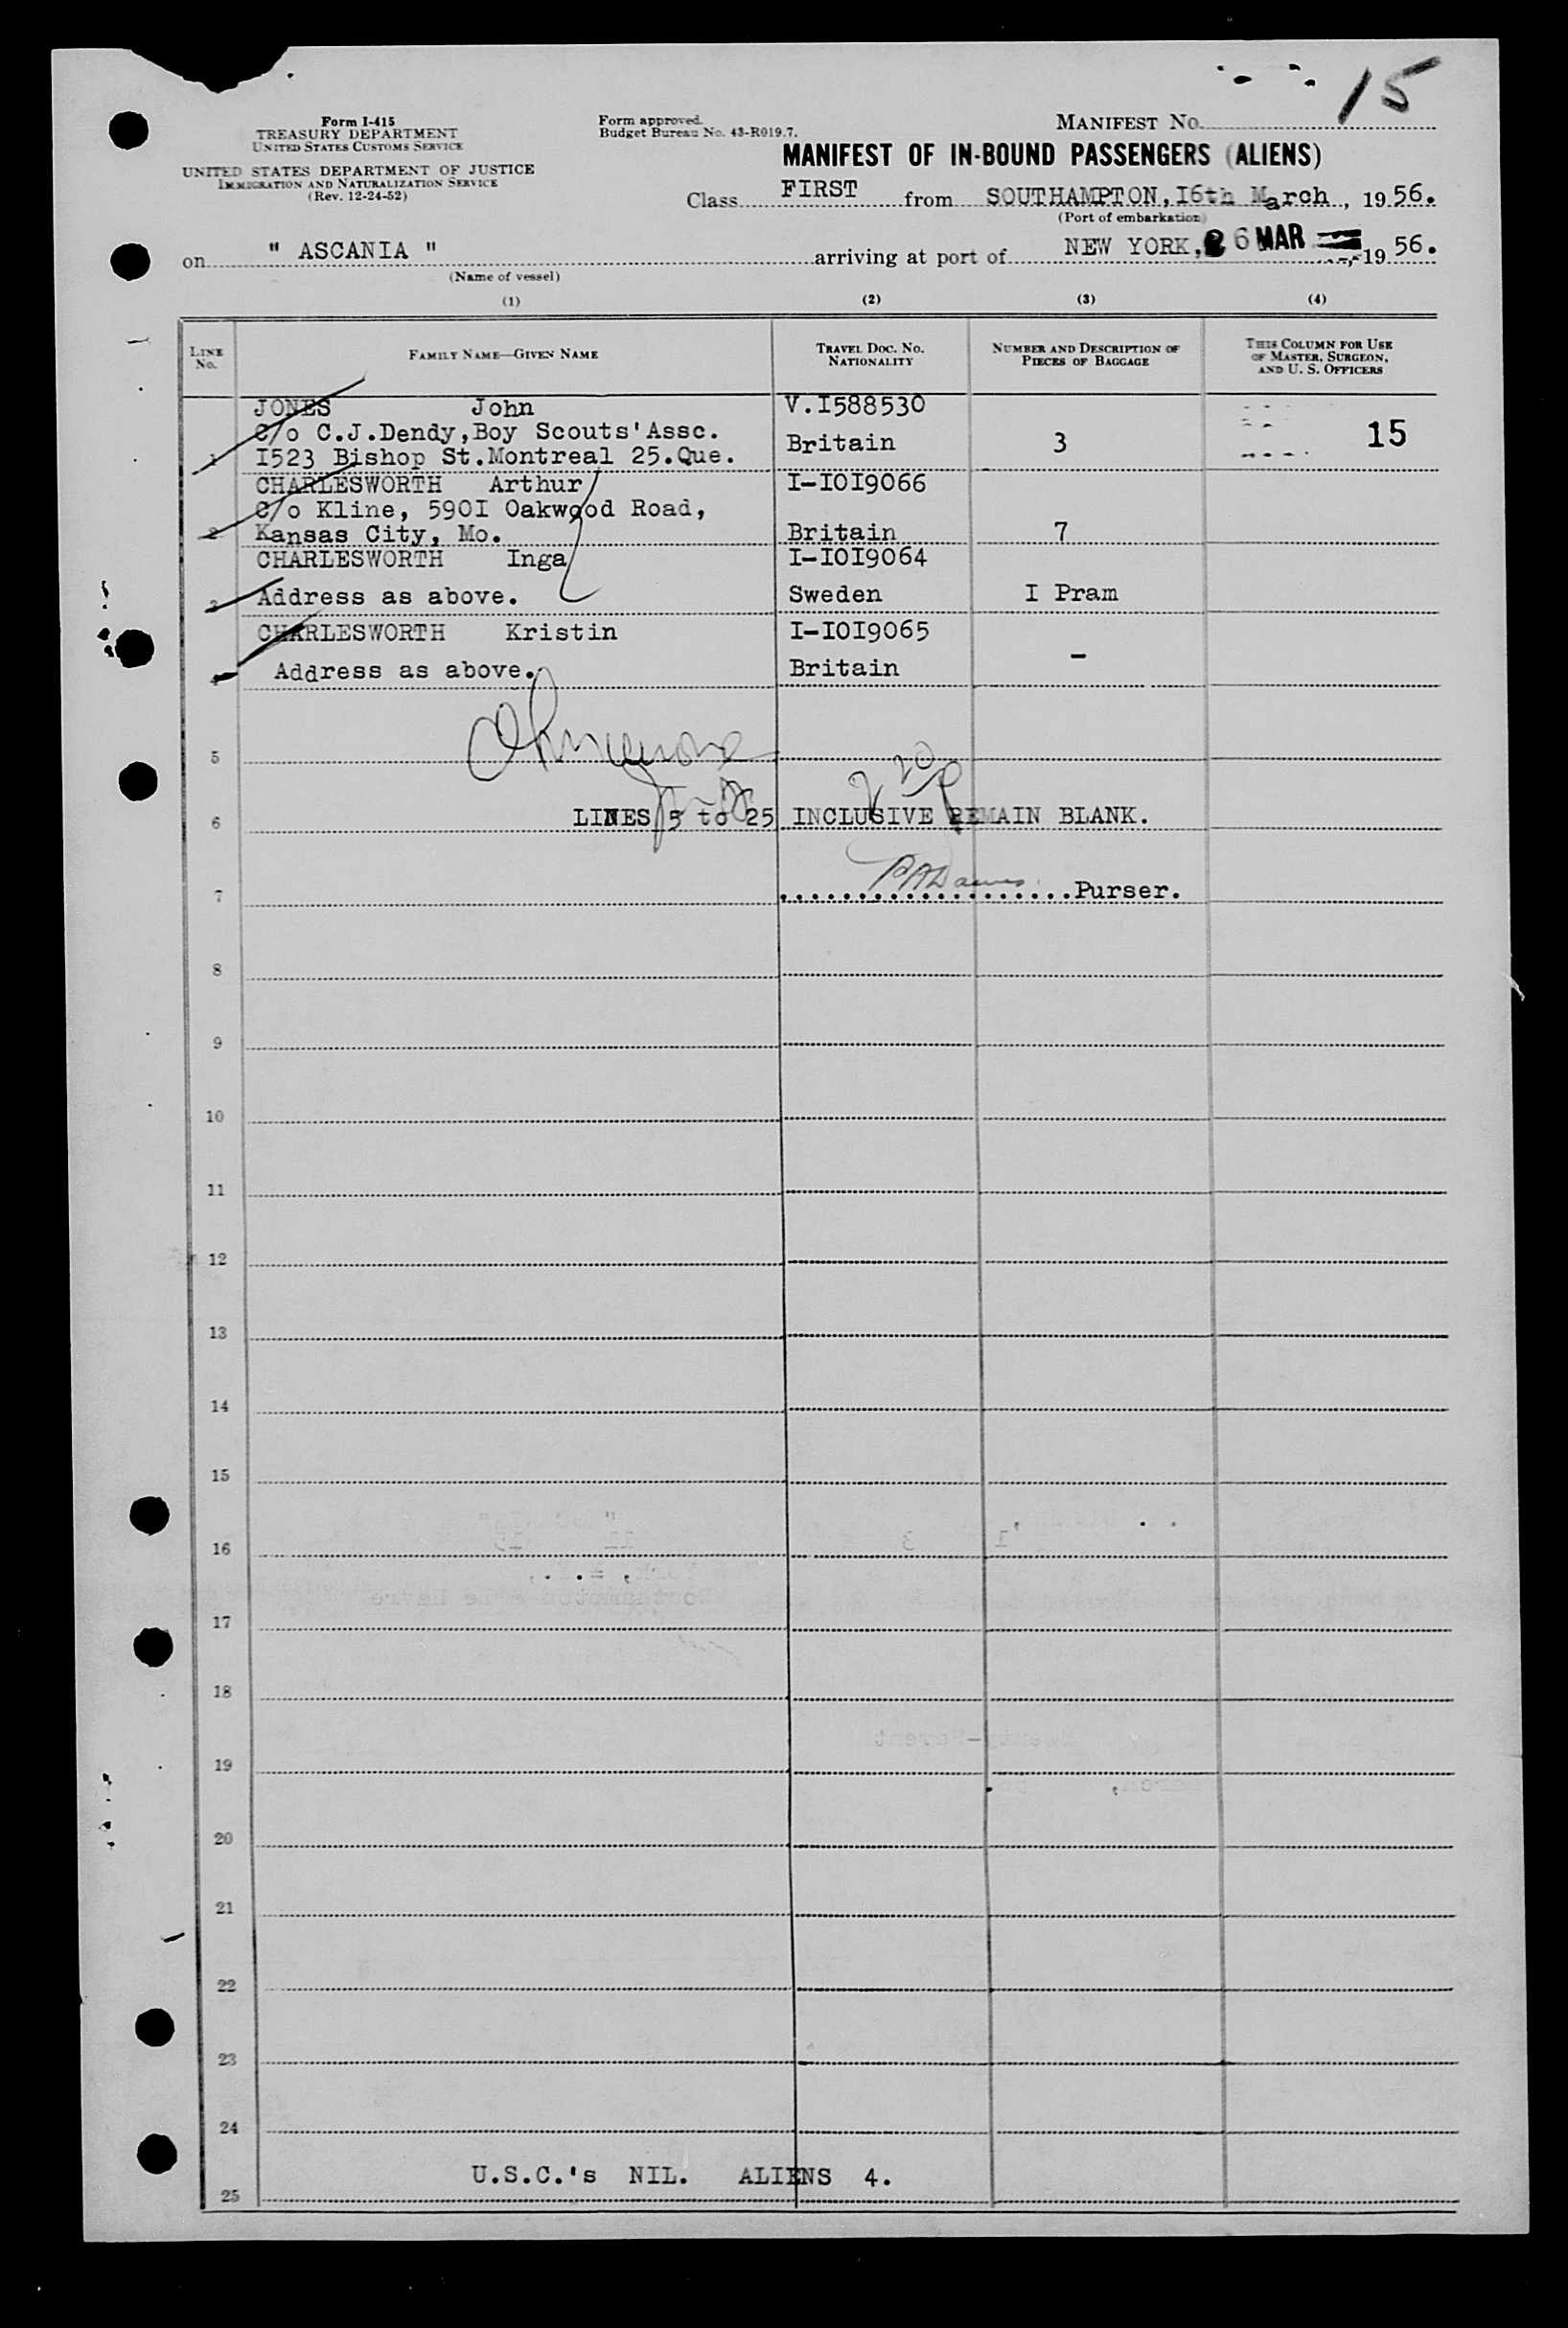 15
Form I-415
TREASURY DEPARTMENT
UNITED STATES CUSTOMS SERVICE
Form approved.
Budget Bureau No. 43-R019.7.
MANIFEST No.
UNITED STATES DEPARTMENT OF JUSTICE
IMMIGRATION AND NATURALIZATION SERVICE
(Rev. 12-24-52)
MANIFEST OF IN-BOUND PASSENGERS (ALIENS)
Class FIRST from SOUTHAMPTON, I6th March, 1956.
(Port of embarkation)
on " ASCANIA " arriving at port of NEW YORK, 26 MAR 1956.
(Name of vessel)
(1) (2) (3) (4)
LINE No. FAMILY NAME—GIVEN NAME TRAVEL DOC. No. NATIONALITY NUMBER AND DESCRIPTION OF PIECES OF BAGGAGE THIS COLUMN FOR USE OF MASTER, SURGEON, AND U. S. OFFICERS
JONES John V.I588530
C/o C.J.Dendy,Boy Scouts'Assc. Britain 3 15
1 I523 Bishop St.Montreal 25.Que.
CHARLESWORTH Arthur I-I0I9066
C/o Kline, 590I Oakwood Road,
2 Kansas City, Mo. Britain 7
CHARLESWORTH Inga I-I0I9064
3 Address as above. Sweden I Pram
CHARLESWORTH Kristin I-I0I9065
4 Address as above. Britain -
5
20
6 LINES 5 to 25 INCLUSIVE REMAIN BLANK.
7 Purser.
8
9
10
11
12
13
14
15
16
17
18
19
20
21
22
23
24
U.S.C.'s NIL. ALIENS 4.
25